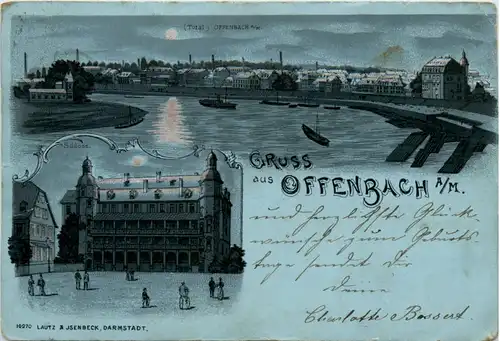 (Total) OFFENBACH a/M.
Schloss.
GRUSS
aus OFFENBACH A/M.
und herzlichste Glück-
wünsche zum Geburts
tage sendet dir
Deine
Charlotte Bossert.
10270 LAUTZ & JSENBECK, DARMSTADT.